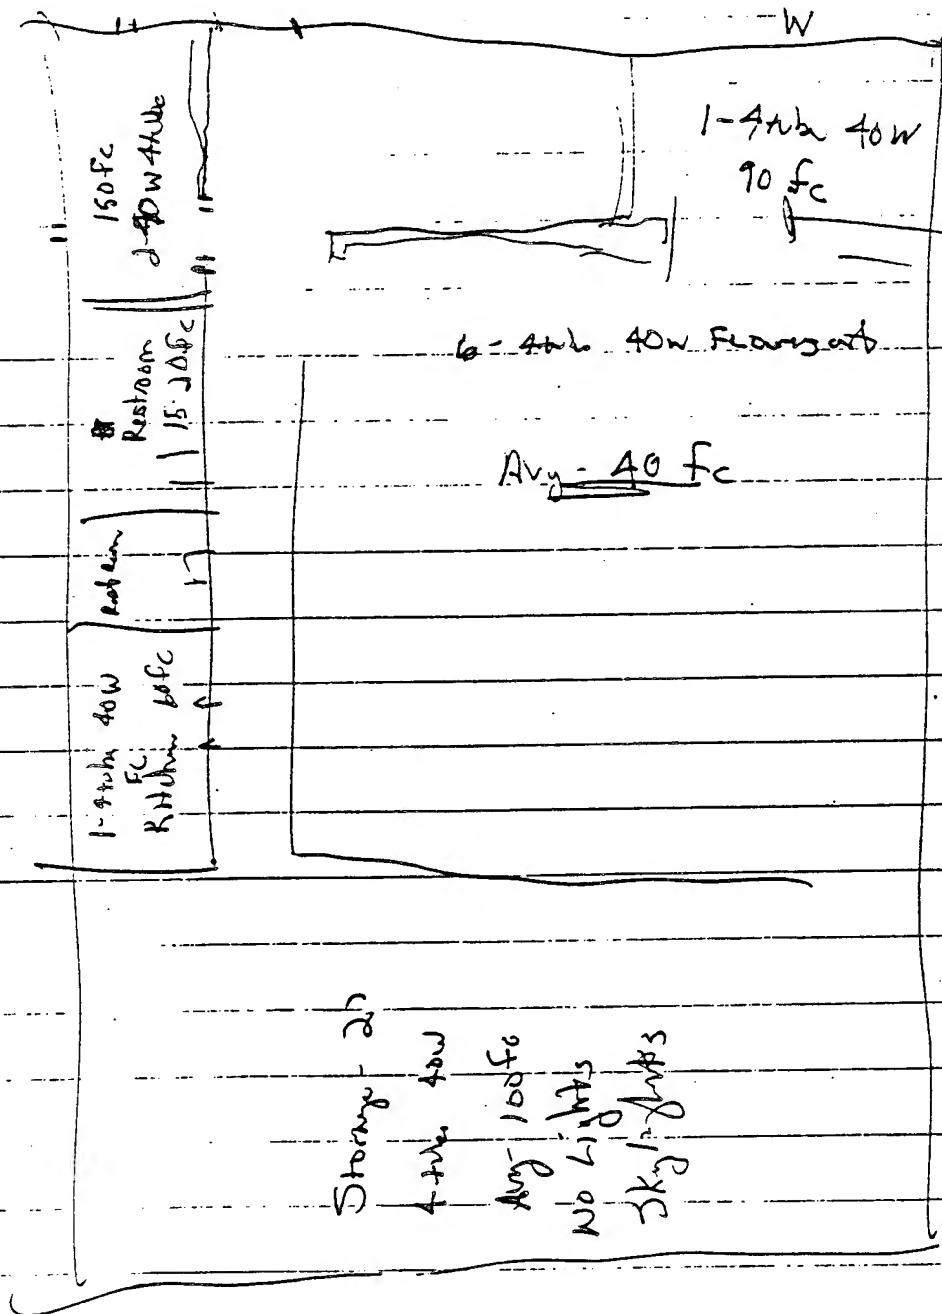 W
1-4tube 40W
90 fc
150 Fc
2-40W 4tube
Restroom
15-20fc
6-4tube 40w
Avg - 40 fc
1-4tube 40W
FC
Kitchen 60fc
Storage -
4 tube 40w
Avg- 100fc
No Lights
Sky lights